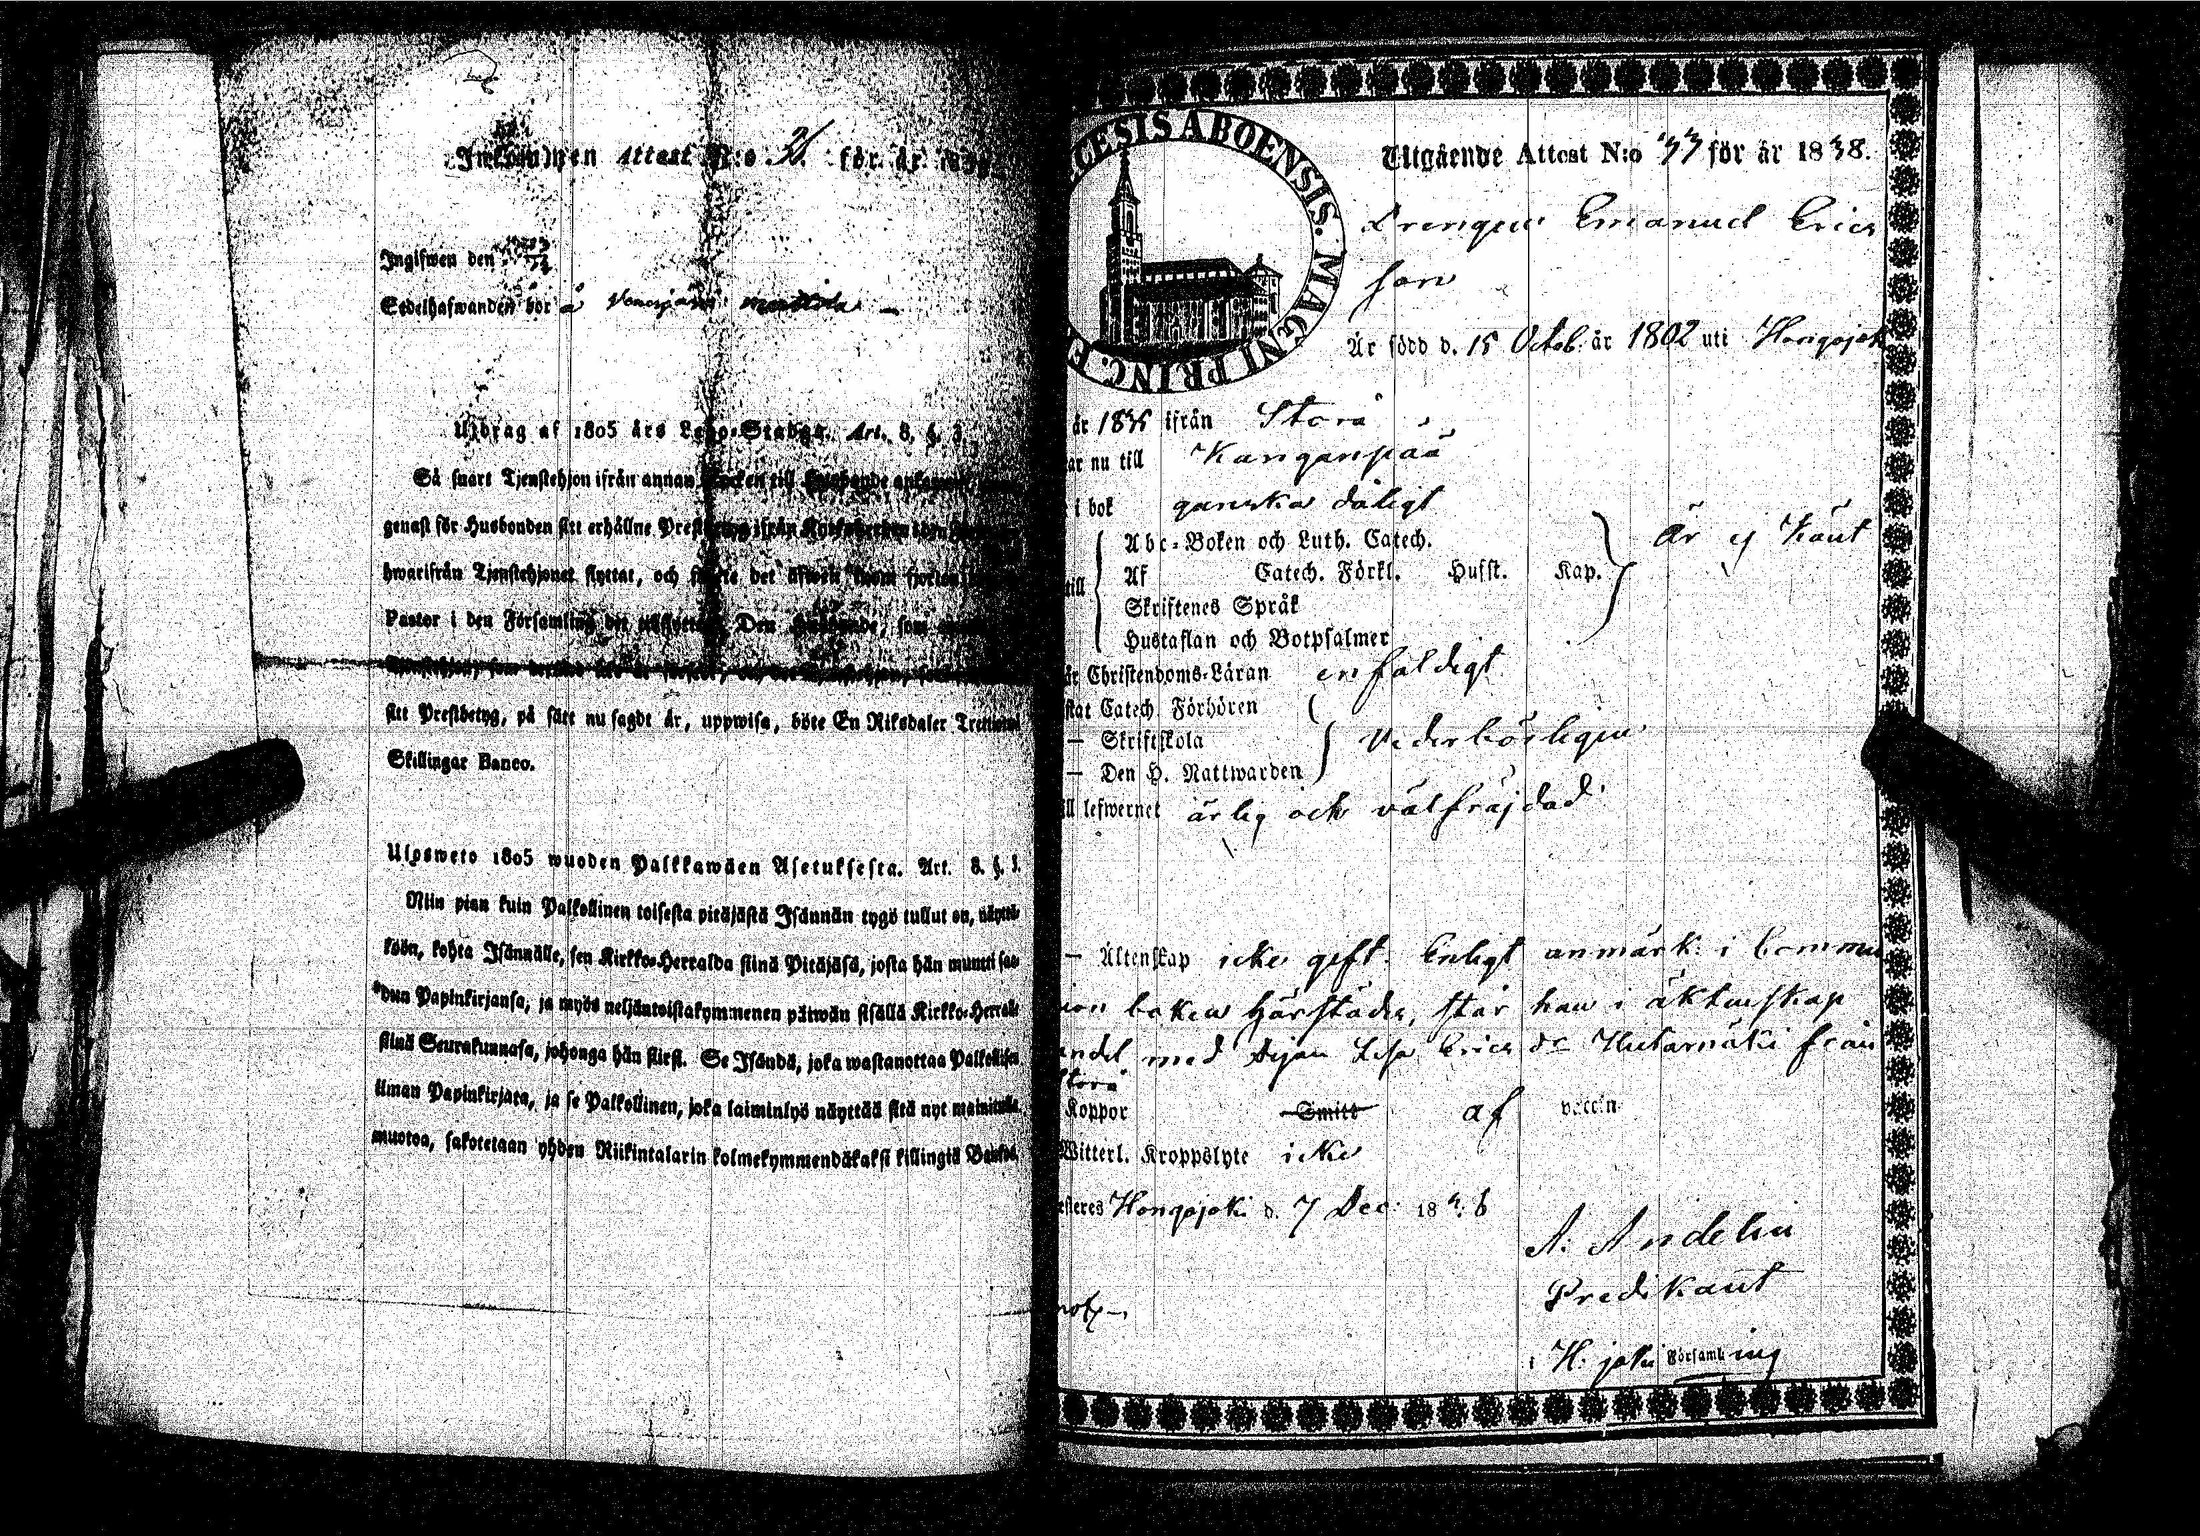 Inkommen Attest N:o 31. för år
Ingifwen den
Sedelhafwanden bor å
Utdrag af 1805 års Lego-Stadga. Art. 8. §. 3.
Så snart Tjenstehjon ifrån annan Socken till Husbonde
genast för Husbonden sitt erhållne Prestbetyg ifrån
hwarifrån Tjenstehjonet flyttat, och det äfwen inom fjorton
Pastor i den Församling det Den Husbonde, som
sitt Prestbetyg, på sätt nu sagdt är, uppwisa, böte En Riksdaler Trettio
Skillingar Banco.
Ulosweto 1805 wuoden Palkkawäen Asetuksesta. Art. 8. §. 3.
Niin pian kuin Palkollinen toisesta pitäjästä Isännän tygö tullut on, näyttä-
köön, kohta Isännälle, sen Kirkko-Herralda siinä Pitäjäsä, josta hän muutti saa-
dun Papinkirjansa, ja myös neljäntoistakymmenen päiwän sisällä Kirkko-Herralle
siinä Seurakunnasa, johonga hän siirsi. Se Isändä, joka wastanottaa Palkollisen
ilman Papinkirjata, ja se Palkollinen, joka laiminlyö näyttää sitä nyt mainitulla
muotoa, sakotetaan yhden Riikintalarin kolmekymmendäkaksi killingiä Bankos.
CESIS ABOENSIS. MAGNI PRINC. F
Utgående Attest N:o 33 för år 1838.
Drengen Emanuel Erics
son
Är född d. 15 Octob. år 1802 uti Hongojok
år 1835 ifrån Storå
ar nu till Kanganpää
i bok ganska dåligt
till
Abc-Boken och Luth. Catech.
Af Catech. Förkl. Husst. Kap.
Skriftenes Språk
Hustaflan och Botpsalmer
Är ej känt
är Christendoms-Läran enfaldigt
stat Catech. Förhören
— Skriftskola
— Den H. Nattwarden
Vederbörligen
ill lefwernet ärlig och välfräjdad.
— Äktenskap icke gift. Enligt anmärk: i Commu
nion boken härstädes, står han i äktenskap
andel med Pigan Lisa Erics dr från
Storå
Koppor Smitt af vaccin
Witterl. Kroppslyte icke
esteres Hongojoki d. 7 Dec: 1838
A: Andelin
Predikant
i H: joki Församling